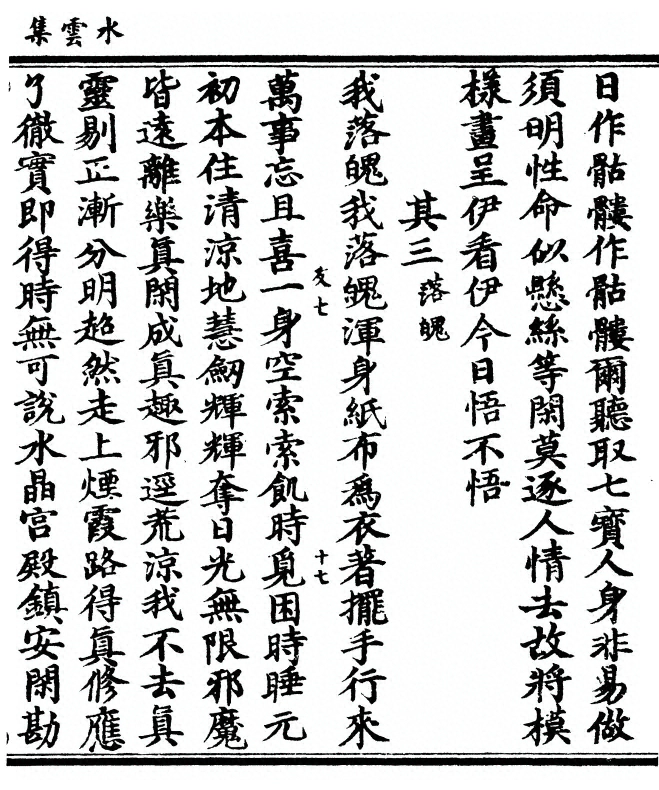 水雲集
日作骷髏作骷髏爾聽取七寶人身非易做
須明性命似懸絲等閑莫逐人情去故將模
樣畫呈伊看伊今日悟不悟
其三落魄
我落魄我落魄渾身紙布爲衣著擺手行來
友七
十七
萬事忘且喜一身空索索飢時覓困時睡元
初本住清涼地慧劒輝輝奪日光無限邪魔
皆遠離樂真閑成真趣邪逕荒涼我不去真
靈剔正漸分明超然走上煙霞路得真修應
了徹實即得時無可說水晶宮殿鎮安閑勘